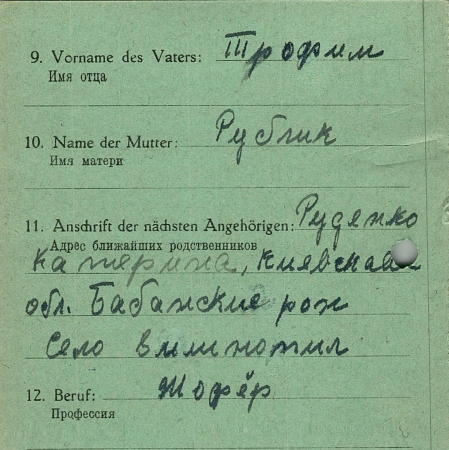 9. Vorname des Vaters: Трофим
Имя отца
10. Name der Mutter: Рублик
Имя матери
11. Anschrift der nächsten Angehörigen: Руденко
Адрес ближайших родственников
Катерина, Киевская
обл. Бабанские рон
Село
12. Beruf: Шофёр
Профессия